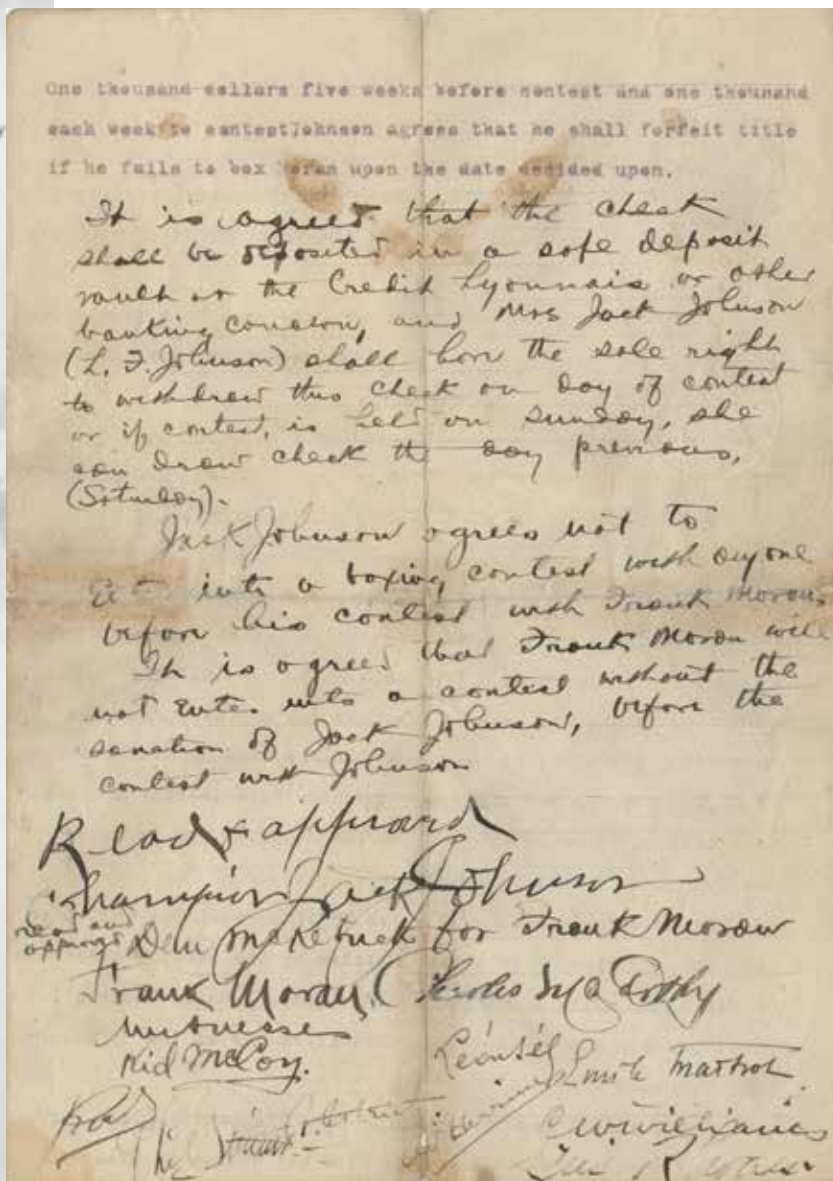 One thousand dollars five weeks before contest and one thousand
each week to contest Johnson agrees that he shall forfeit title
if he fails to box Moran upon the date decided upon.
It is agreed that the check
shall be deposited in a safe deposit
vault at the Credit Lyonnais or other
banking concern, and Mrs Jack Johnson
(L. F. Johnson) shall have the sole right
to withdraw this check on day of contest
or if contest, is held on Sunday, she
can draw check the day previous,
(Saturday).
Jack Johnson agrees not to
enter into a boxing contest with anyone
before his contest with Frank Moran
It is agreed that Frank Moran will
not enter into a contest without the
sanction of Jack Johnson, before the
contest with Johnson
Read & approved
Champion Jack Johnson
read and
approved Dan McKetrick for Frank Moran
Frank Moran Charles McCarthy
Witnesses
Kid McCoy.
Léon Sée
Emile Maitrot